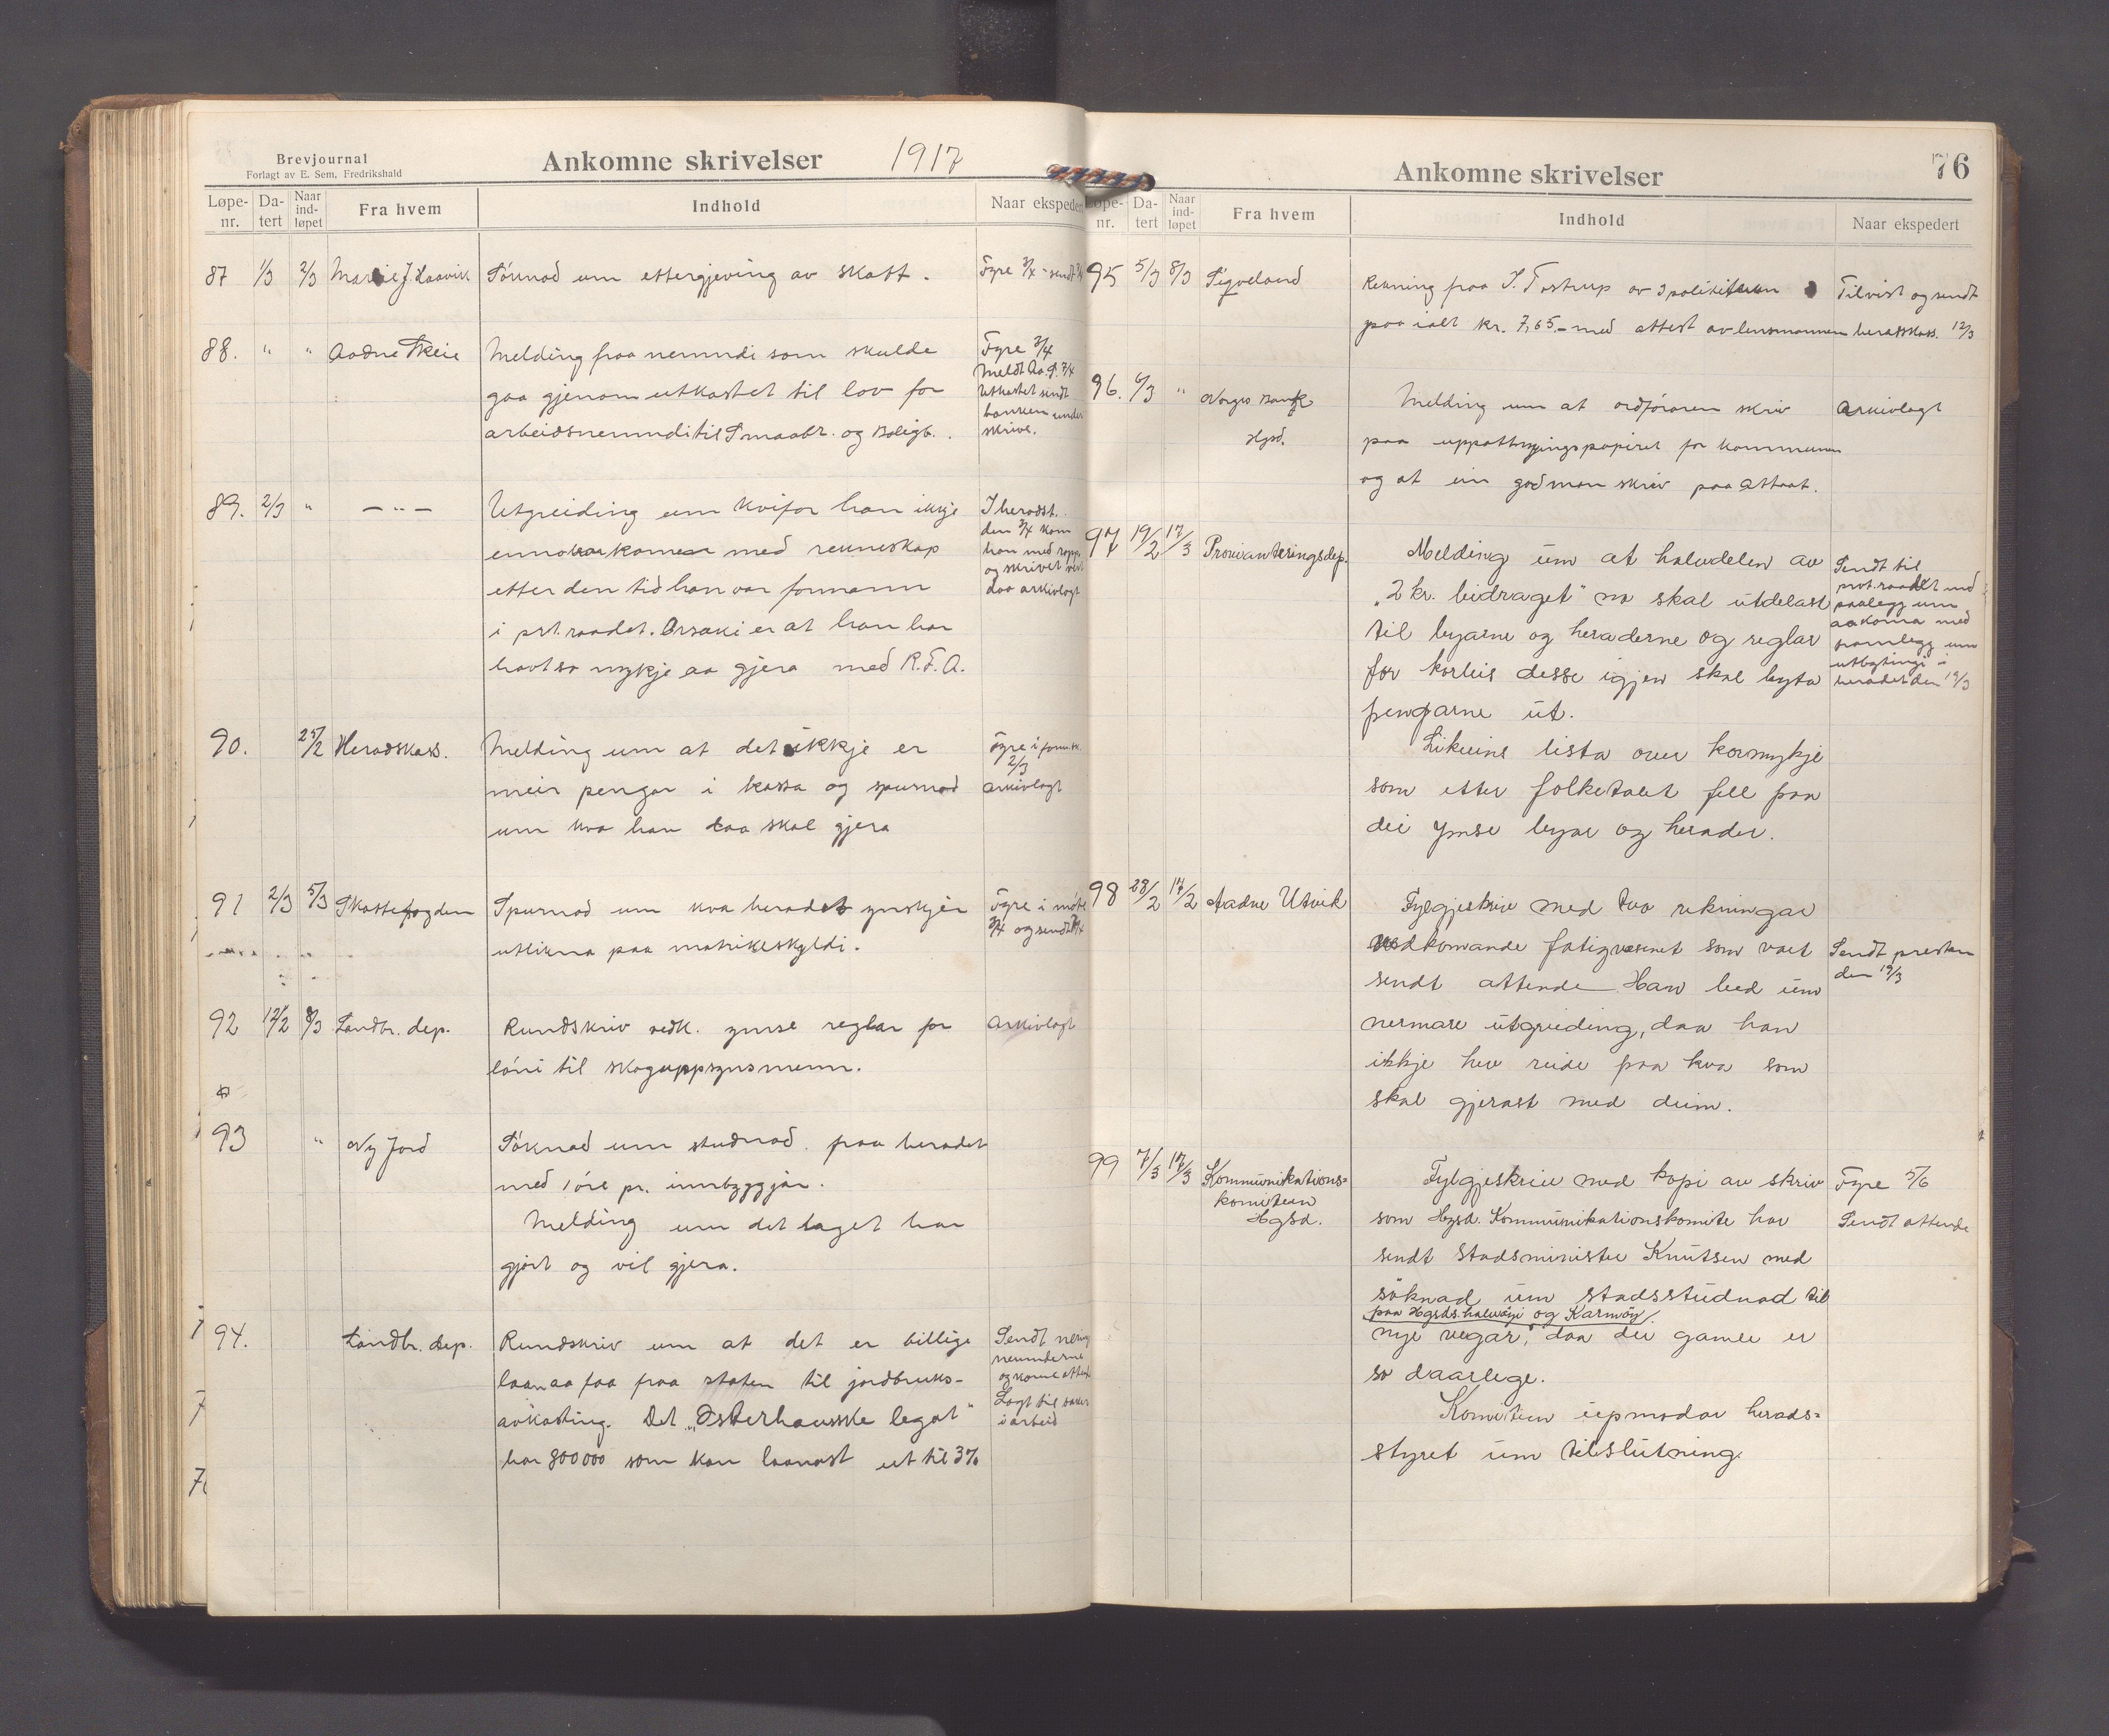 Brevjournal
Forlagt av E. Sem, Fredrikshald
Ankomne skrivelser 1917
Løpe-nr. Da-tert Naar ind-løpet Fra hvem Indhold Naar ekspedert
87 1/3 2/3 Marie J. Haavik Söknad um ettergjeving av skatt. Fyre 3/4 - sendt
88. " " Aadne Skeie Melding fraa nemndi som skulde
gaa gjenom utkastet til lov for
arbeidsnemndi til Smaabr. og Boligb.
Fyre 3/4
meldt Aa. S. 7/4
Utkastet sendt
banken under
skrive.
89. 2/3 " — " — Utgreiding um kvifor han ikkje
enno har kome med rekneskap
etter den tid han var formann
i prt.raadet. Orsaki er at han har
havt so mykje aa gjera med R.F.A.
I heradst.
den 3/4 kom
han med rapp.
og skrivet vert
daa arkivlagt
90. 25/2 Heradskass. Melding um at det ikkje er
meir pengar i kassa og spurnad
um kva han daa skal gjera
Fyre i formsk.
2/3
arkivlagt
91 2/3 5/3 Skattefogden Spurnad um kva heradet ynskjer
utlikna paa matrikelskyldi.
Fyre i møte
3/4 og sendt 7/4
92 12/2 8/3 Landbr. dep. Rundskriv vedk. ymse reglar for
löni til skoguppsynsmenn.
arkivlagt
93 " Ny Jord Söknad um studnad fraa heradet
med 1 öre pr. innbyggjar.
Melding um det laget har
gjort og vil gjera.
94. Landbr. dep. Rundskriv um at det er billige
laan aa faa fraa staten til jordbruks-
avkasting. Det "Osterhausske legat"
har 800000 som kan laanast ut til 3%
Sendt nering
nemnderne
og kome attende
Lagt til saker
i arbeid
Ankomne skrivelser 76
Løpe-nr. Da-tert Naar ind-løpet Fra hvem Indhold Naar ekspedert
95 5/3 8/3 Sigveland Rekning fraa J. Tostrup av 3 politi
paa ialt kr. 7,65 - med attest av lensmannen
Tilvist og sendt
heradskass. 12/3
96. 6/3 " Norges Bank
Hgsd.
Melding um at ordföraren skriv
paa uppattnyingspapiret for kommunen
og at ein godman skriv paa attaat.
Arkivlagt
97 19/2 17/3 Provianteringsdep. Melding um at halvdelen av
"2 kr. bidraget" no skal utdelast
til byarne og heraderne og reglar
for korleis desse igjen skal byta
pengarne ut.
Likeins lista over kormykje
som etter folketalet fell paa
dei ymse byar og herader.
Sendt til
prov.raadet med
paalegg um
aa koma med
framlegg um
utbytingi i
heradet den 19/3
98 28/2 17/2 Aadne Utvik Fylgjeskriv med tvo rekningar
vedkomande fatigvæsenet som vart
sendt attende. Han bed um
nermare utgreiding, daa han
ikkje hev reide paa kva som
skal gjerast med deim.
Sendt presten
den 19/3
99 7/3 17/3 Kommunikations-
komiteen
Hgsd.
Fylgjeskriv med kopi av skriv
som Hgsd. Kommunikationskomite har
sendt Stadsminister Knutsen med
söknad um stadsstudnad til
paa Hgsds. halvöyi og Karmöy.
nye vegar, daa dei gamle er
so daarlege.
Komiteen uppmodar herads-
styret um tilslutning.
Fyre 5/6
Sendt attende